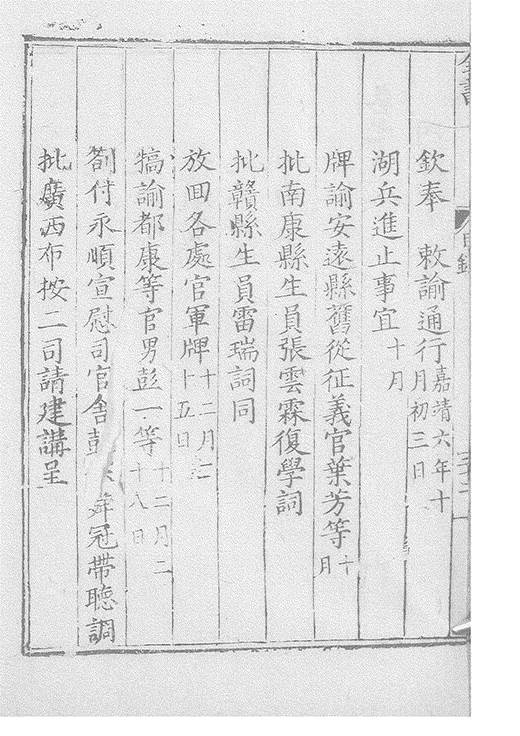 全書
目錄
欽奉 敕諭通行嘉靖六年十月初三日
湖兵進止事宜十月
牌諭安遠縣舊從征義官葉芳等十月
批南康縣生員張雲霖復學詞
批贛縣生員雷瑞詞同
放回各處官軍牌十二月二十五日
犒諭都康等官男彭一等十二月二十八日
劄付永順宣慰司官舍彭 冠帶聽調
批廣西布按二司請建講呈